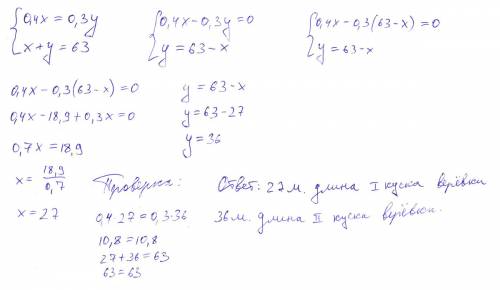 {0,4x = 0,3y
x + y = 63
{0,4x – 0,3y = 0
y = 63 – x
{0,4x – 0,3(63 – x) = 0
y = 63 – x
0,4x – 0,3(63 – x) = 0
0,4x – 18,9 + 0,3x = 0
0,7x = 18,9
x = 18,9/0,7
x = 27
y = 63 – x
y = 63 – 27
y = 36
Проверка:
0,4·27 = 0,3·36
10,8 = 10,8
27 + 36 = 63
63 = 63
Ответ: 27 м. длина I куска верёвки
36 м. длина II куска верёвки.